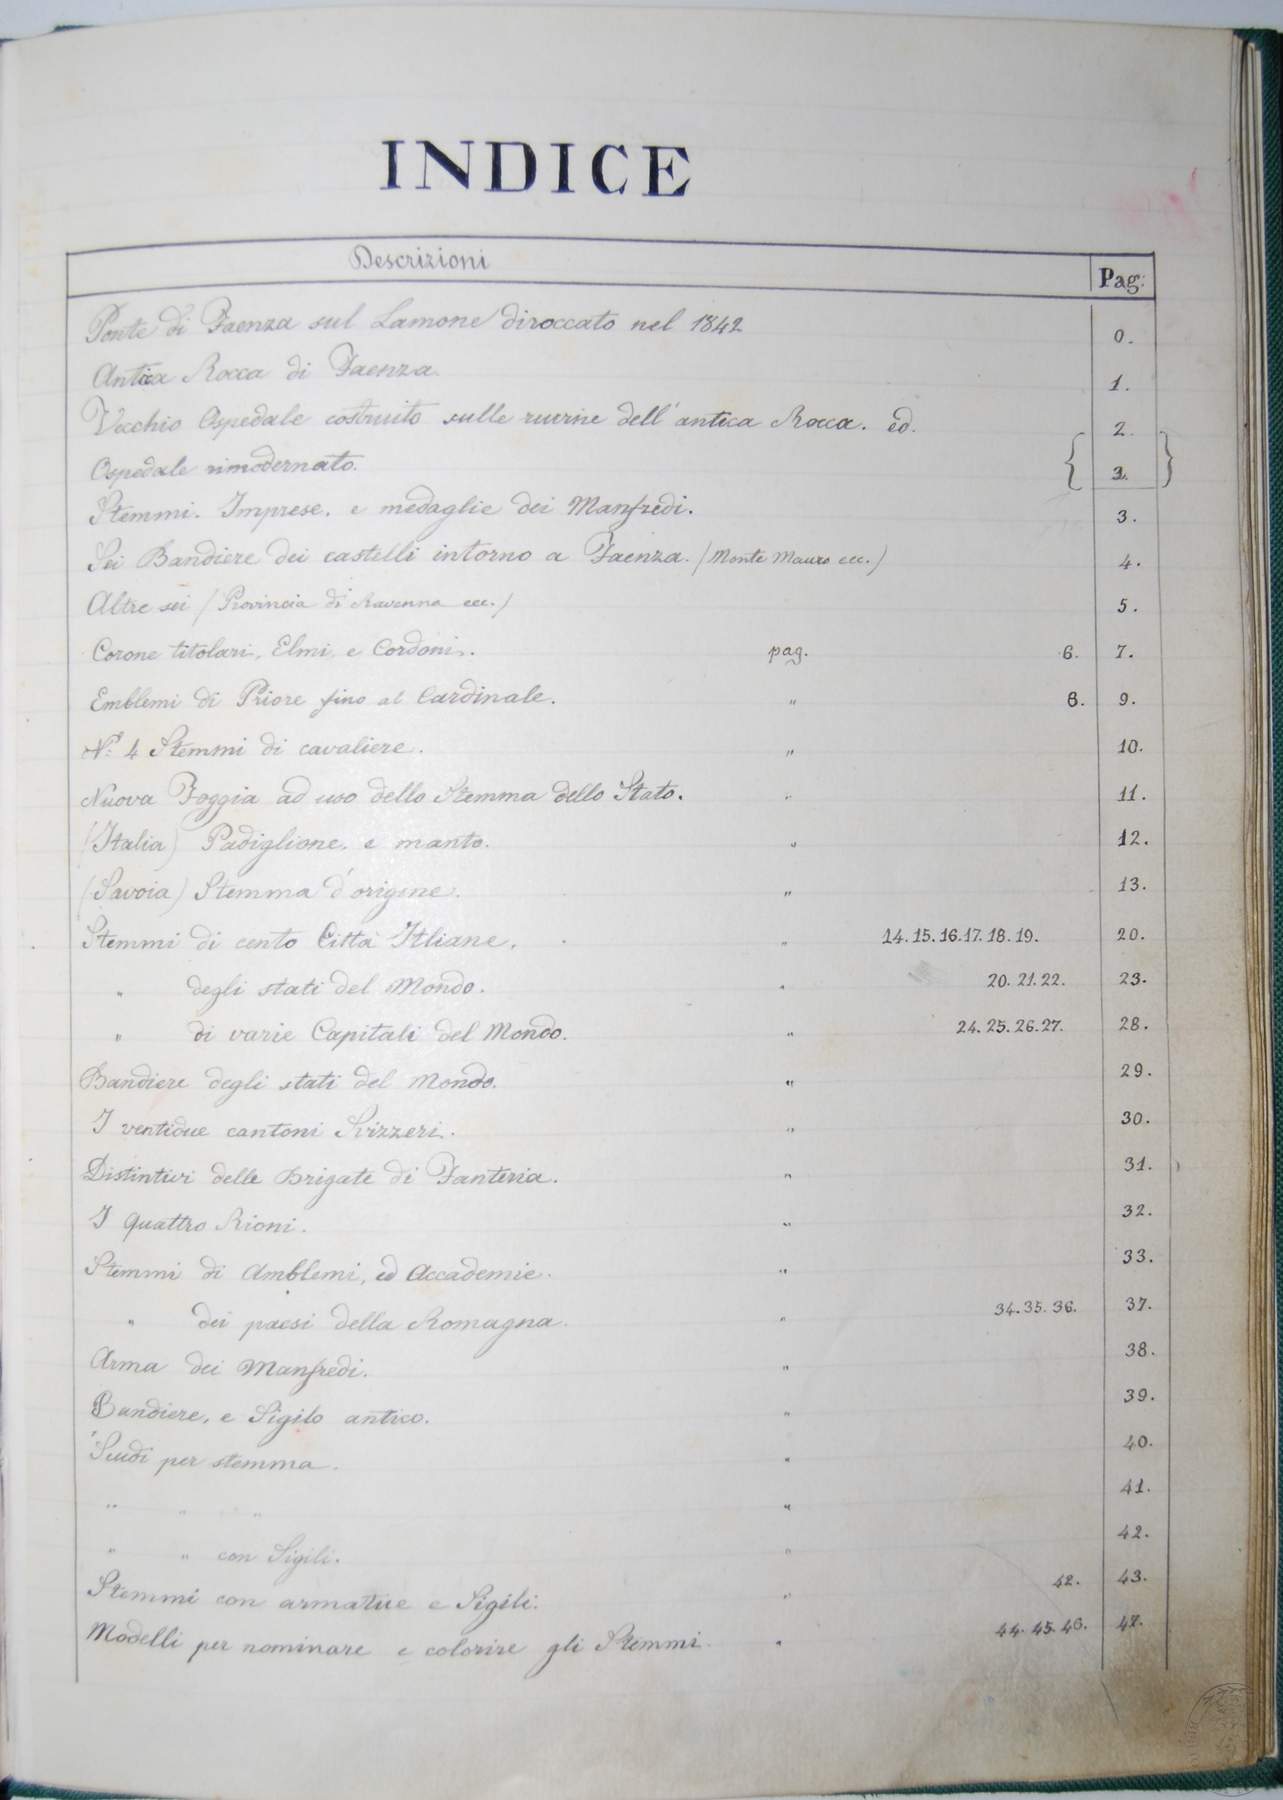 INDICE
Descrizioni Pag:
Ponte di Faenza sul Lamone diroccato nel 1842 0.
Antica Rocca di Faenza. 1.
Vecchio Ospedale costruito sulle ruvine dell'antica Rocca. ed. 2.
Ospedale rimodernato. 3.
Stemmi. Imprese. e medaglie dei Manfredi. 3.
Sei Bandiere dei castelli intorno a Faenza. (Monte Mauro ecc.) 4.
Altre sei (Provincia di Ravenna ecc.) 5.
Corone titolari, Elmi e Cordoni. pag. 6. 7.
Emblemi di Priore fino al Cardinale. " 8. 9.
N.º 4 Stemmi di cavaliere. " 10.
Nuova Foggia ad uso dello Stemma dello Stato. " 11.
(Italia) Padiglione. e manto. " 12.
(Savoia) Stemma d'origine. " 13.
Stemmi di cento Città Itliane. " 14.15.16.17.18.19. 20.
" degli stati del Mondo. " 20.21.22. 23.
" di varie Capitali del Mondo. " 24.25.26.27. 28.
Bandiere degli stati del Mondo. " 29.
I ventidue cantoni Svizzeri. " 30.
Distintivi delle Brigate di Fanteria. " 31.
I quattro Rioni. " 32.
Stemmi di Amblemi, ed Accademie. " 33.
" dei paesi della Romagna. " 34.35.36. 37.
Arma dei Manfredi. " 38.
Bandiere, e Sigilo antico. " 39.
Scudi per stemma. " 40.
" " " " 41.
" " con Sigili. " 42.
Stemmi con armature e Sigili. " 42. 43.
Modelli per nominare e colorire gli Stemmi. " 44.45.46. 47.